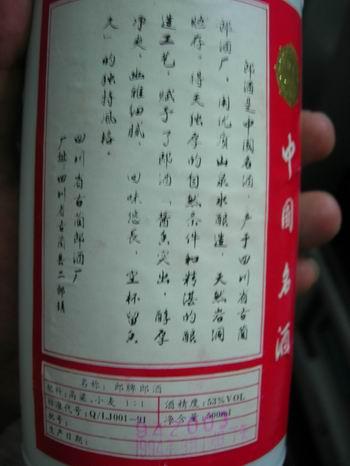 中国名酒
郎酒是中国名酒，产于四川省古蔺
郎酒厂，用优质山泉水酿造，天然岩洞
贮存。得天独厚的自然条件和精湛的酿
造工艺，赋予了郎酒“酱香突出，醇厚
净爽，幽雅细腻，回味悠长，空杯留香
久”的独特风格。
四川省古蔺郎酒厂
厂址四川省古蔺县二郎镇
名称：郎牌郎酒
配料：高粱:小麦 1:1 酒精度：53%VOL
标准代号：Q/LJ001-91 净含量：500ml
批号：
生产日期：